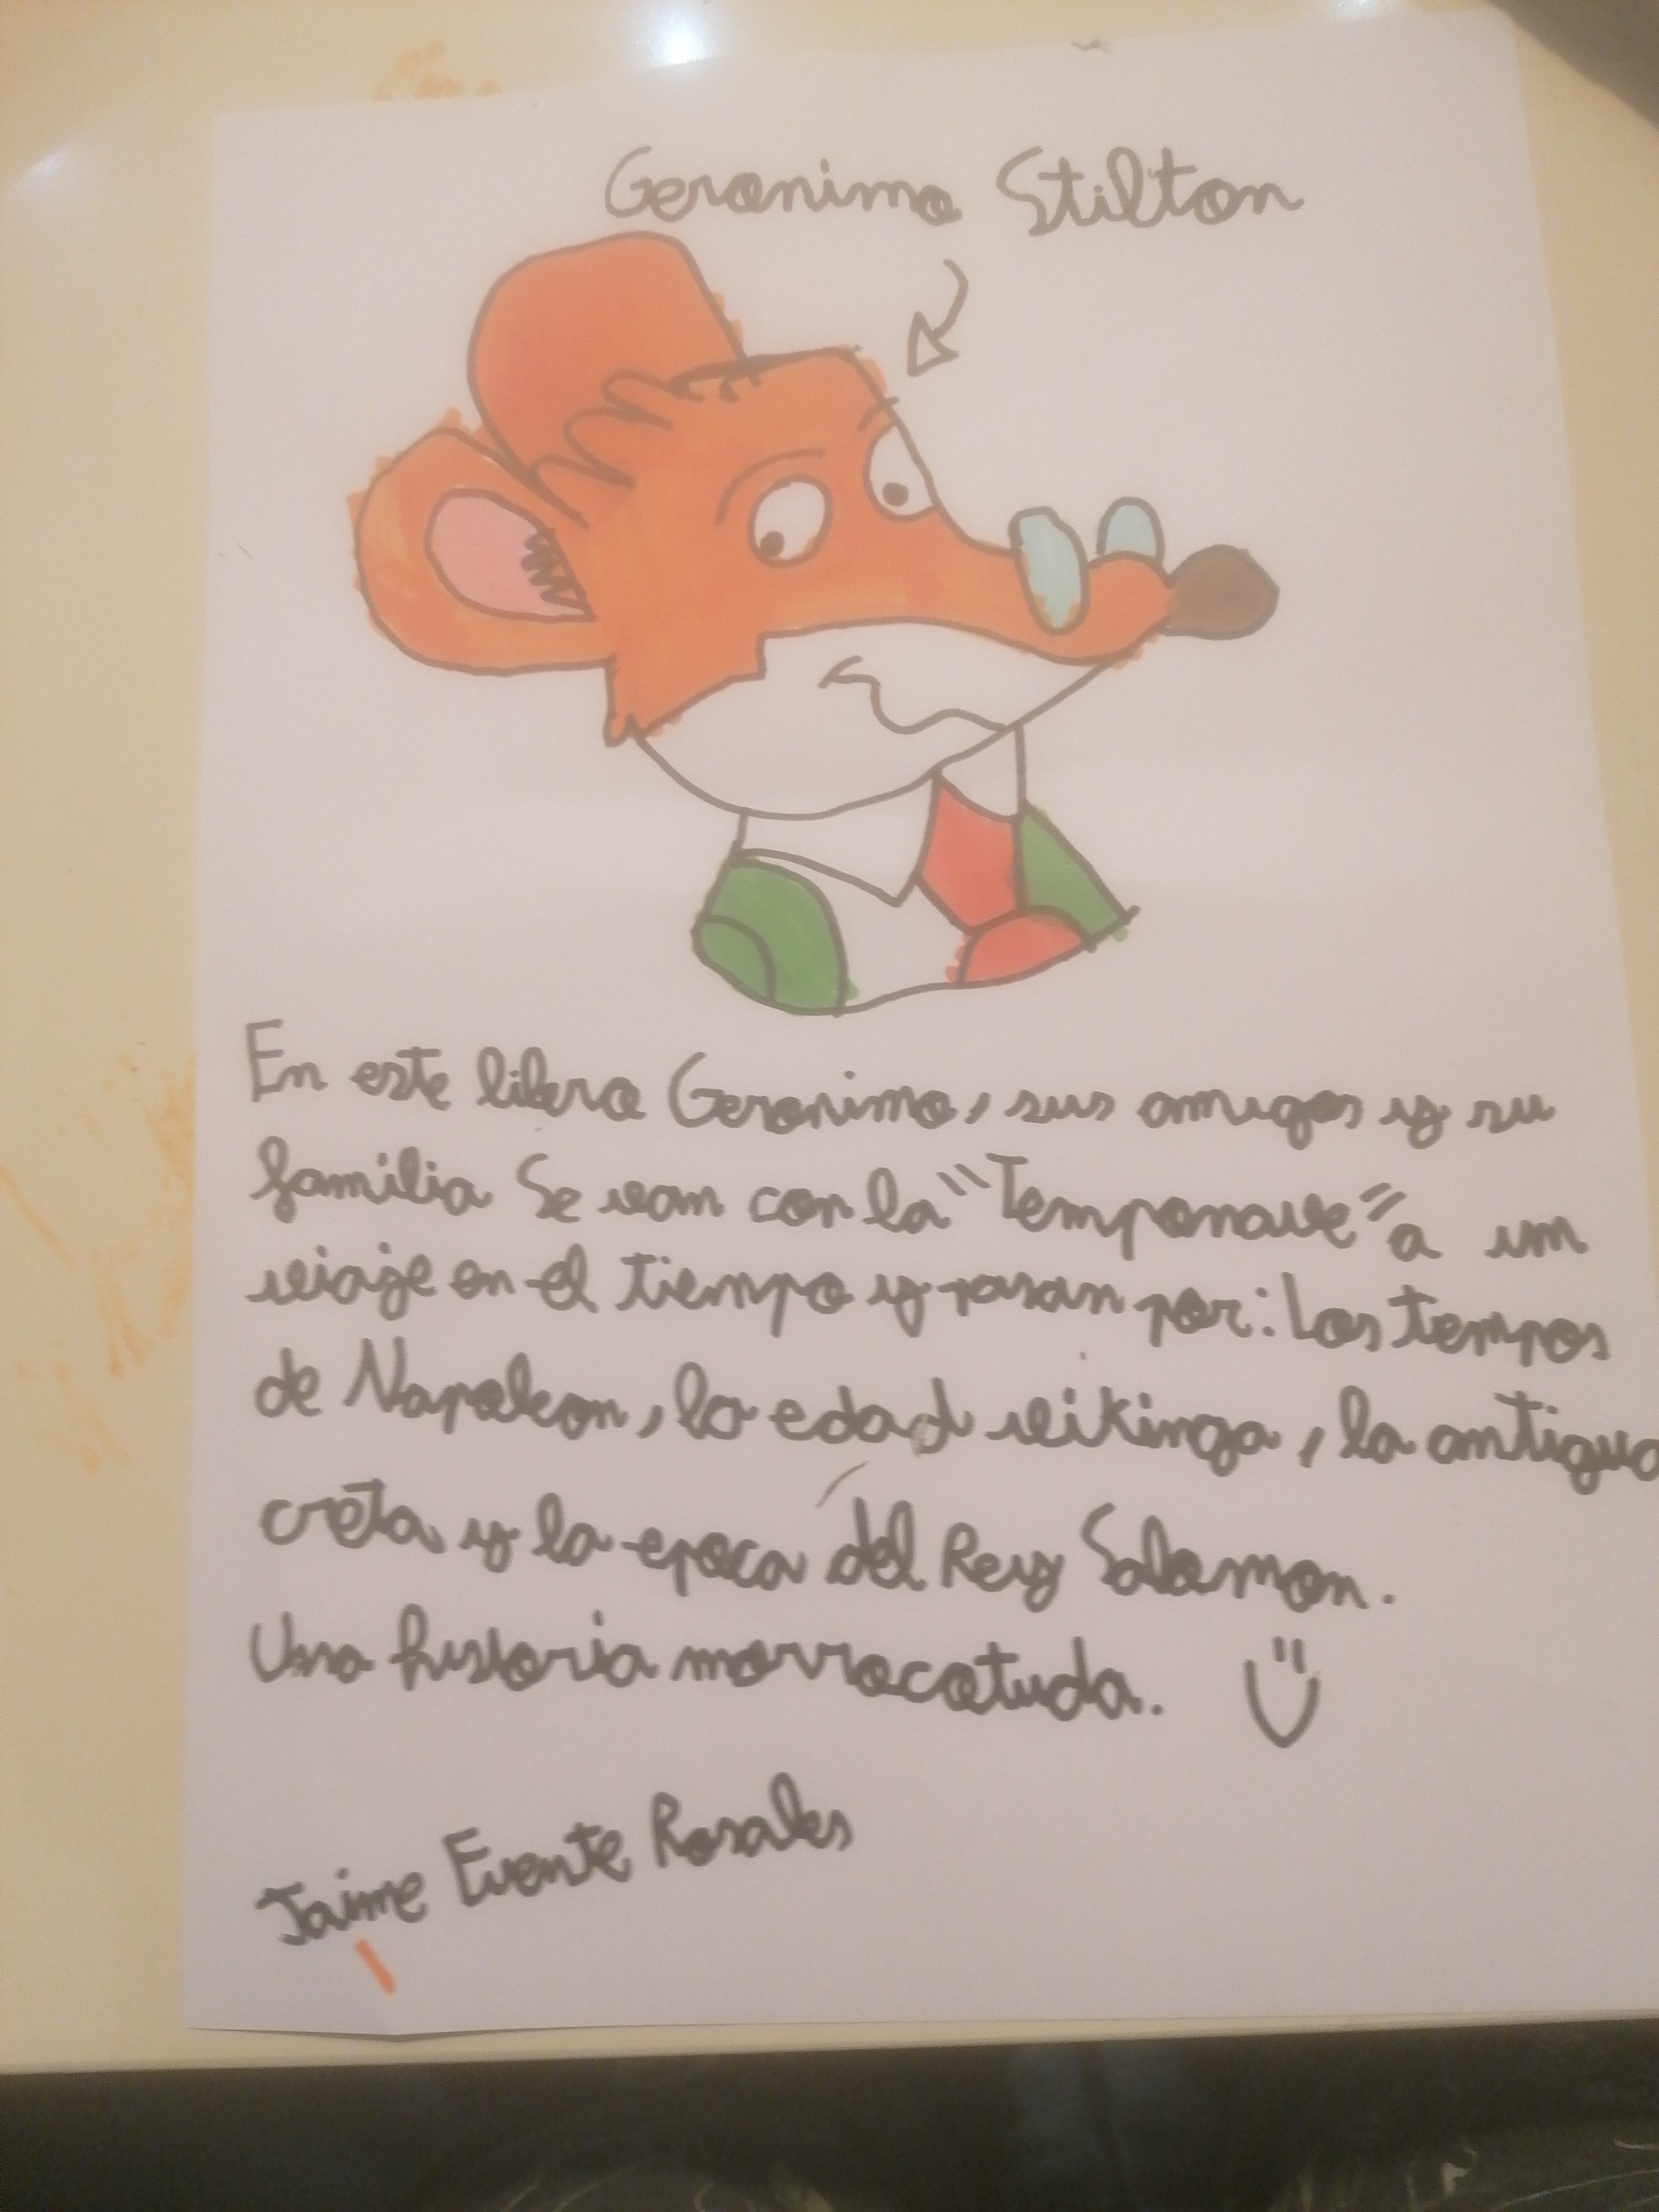 Geronimo Stilton
En este libro Geronimo, sus amigos y su
familia Se van con la "Temponave" a un
viaje en el tiempo y pasan por: Los tempos
de Napoleon, la edad vikinga, la antigua
creta y la epoca del Rey Salomon.
Una historia morrocotuda.
Jaime Fuente Rosales